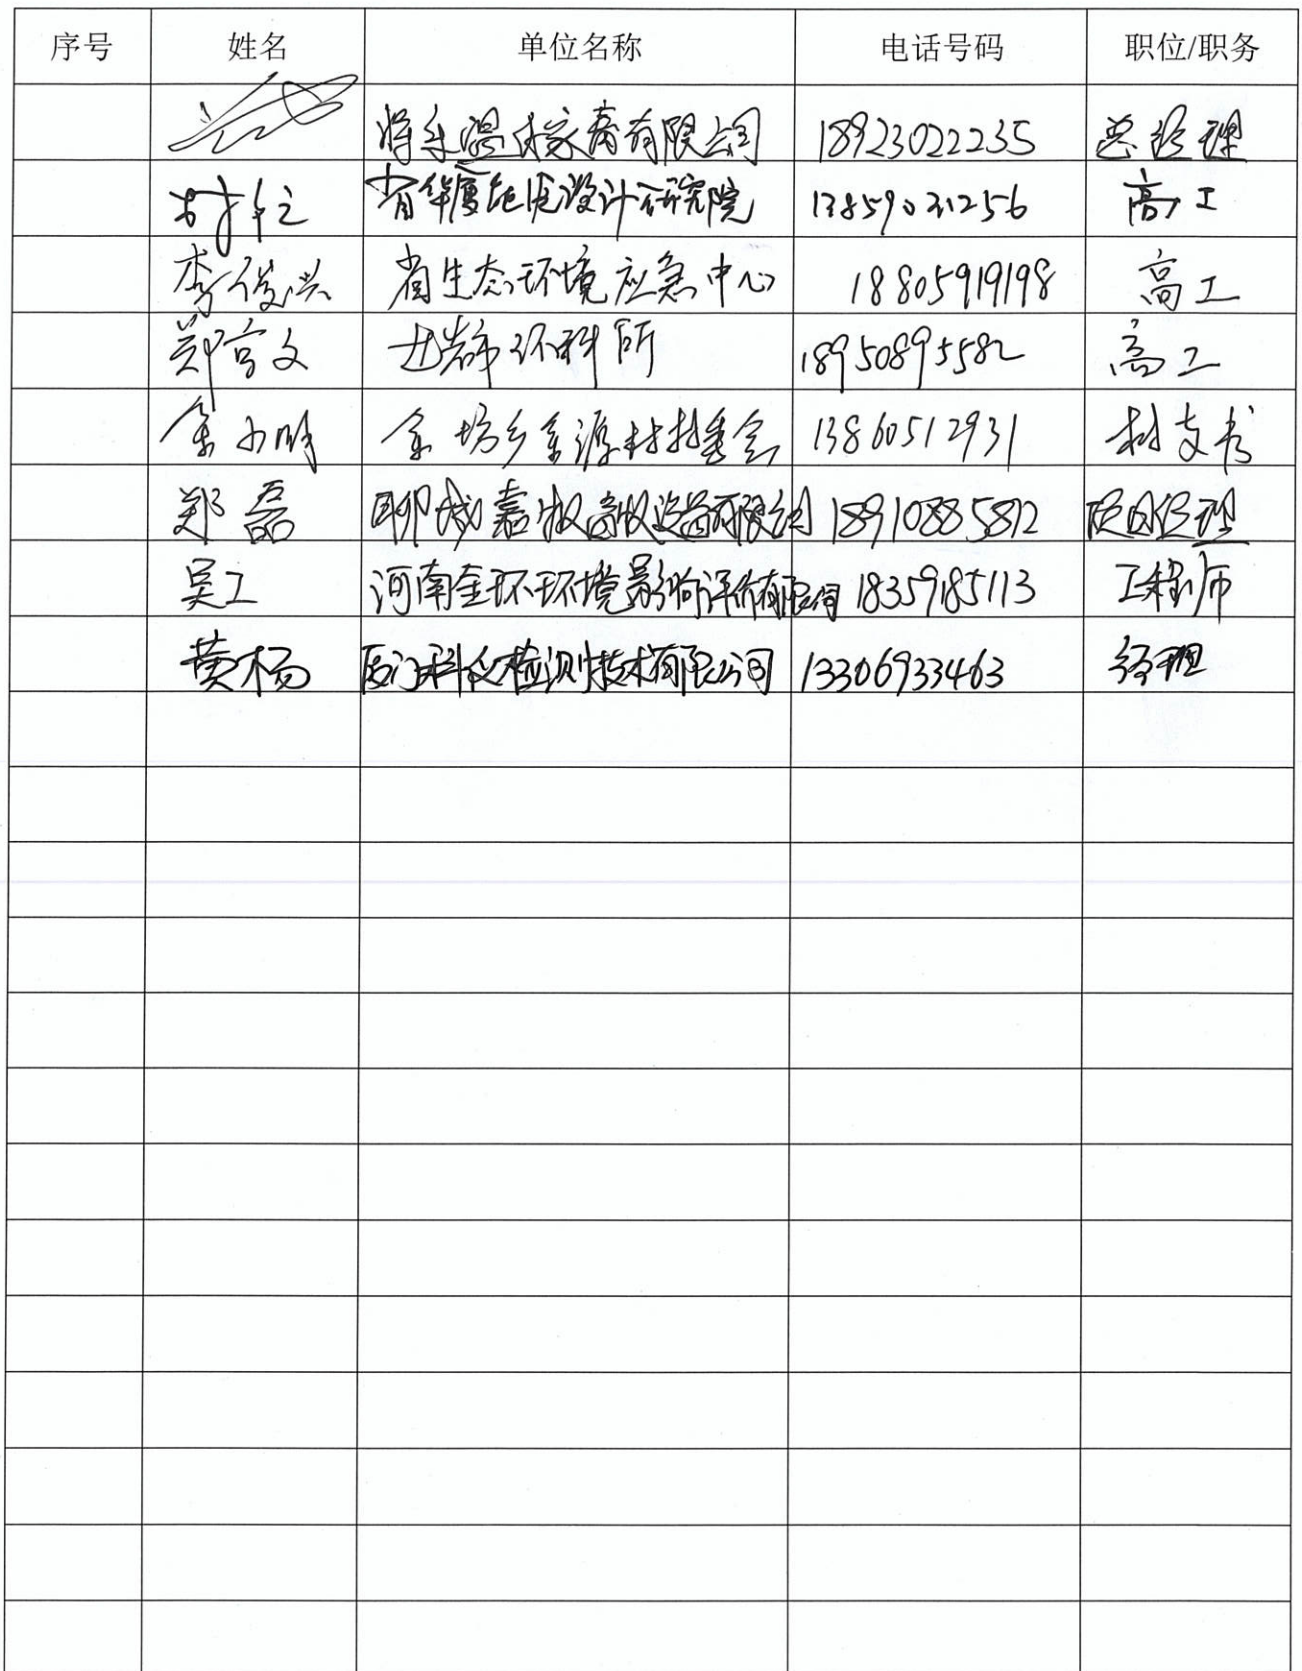 序号 姓名 单位名称 电话号码 职位/职务
将乐温氏家禽有限公司 18923022235 总经理
省华厦能源设计研究院 13859021256 高工
李俊兴 省生态环境应急中心 18805919198 高工
郑富文 龙岩市环科所 18950895582 高工
余小明 余坊乡余源村村委会 13860512931 村支书
郑磊 聊城嘉牧畜牧设备有限公司 18910885812 项目经理
吴工 河南金环环境影响评价有限公司 18359185113 工程师
黄杨 厦门科仪检测技术有限公司 13306933463 经理